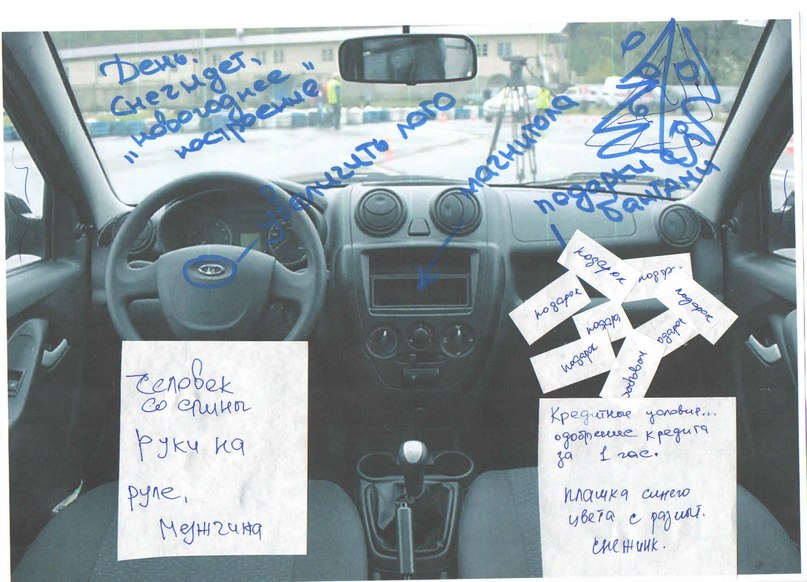 День.
снег идет,
"новогоднее"
настроение
увеличить лого
магнитола
подарки
бантами
подарок
подар.
подарок
подарок
подарок
подарок
подарок
Человек
со спины
руки на
руле,
Мужчина
Кредитные условия...
одобрение кредита
за 1 час.
плашка синего
цвета с размыт.
снежинк.